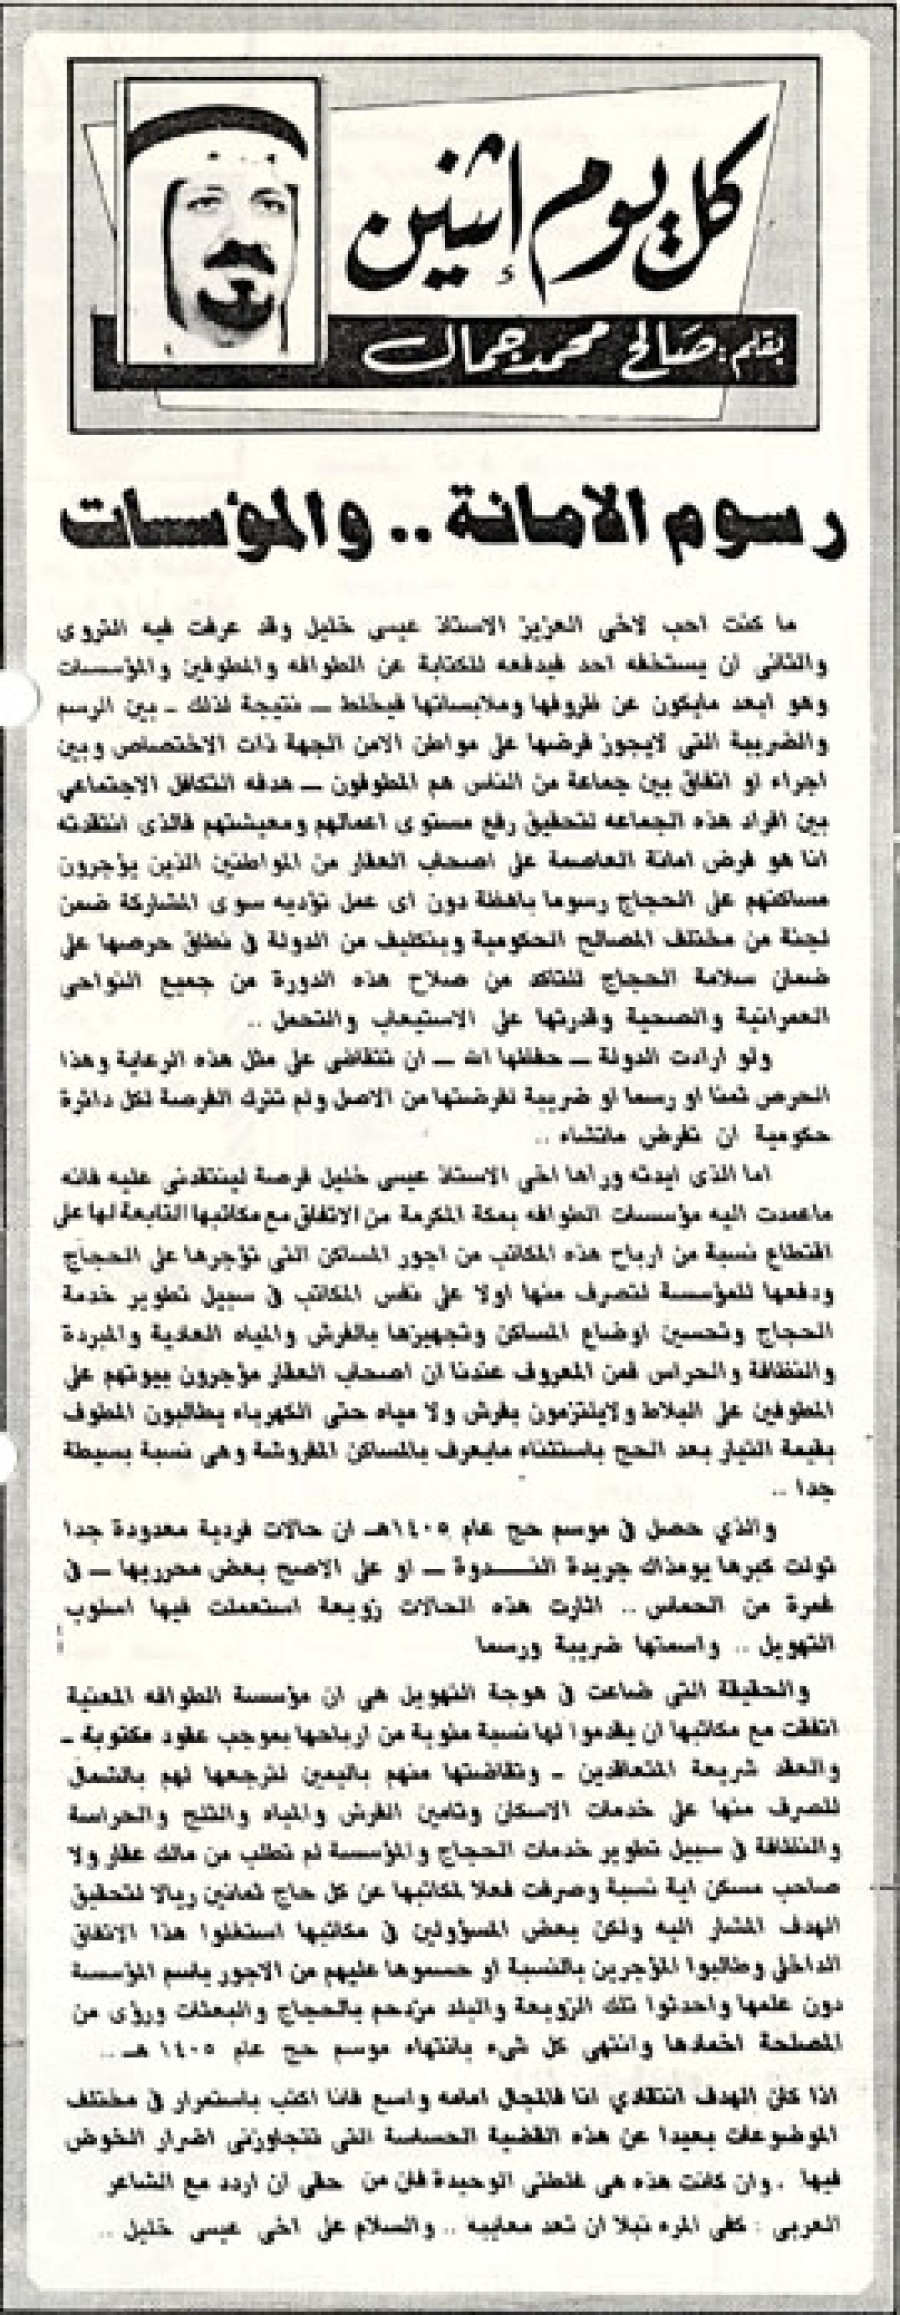 كل يوم إثنين
بقلم: صالح محمد جمال
رسوم الامانة .. والمؤسسات
ما كنت احب لاخى العزيز الاستاذ عيسى خليل وقد عرفت فيه التروى
والتانى ان يستخفه احد فيدفعه للكتابة عن الطوافه والمطوفين والمؤسسات
وهو ابعد مايكون عن ظروفها وملابساتها فيخلط ـ نتيجة لذلك ـ بين الرسم
والضريبة التى لايجوز فرضها على مواطن الامن الجهة ذات الاختصاص وبين
اجراء او اتفاق بين جماعة من الناس هم المطوفون ـ هدفه التكافل الاجتماعي
بين افراد هذه الجماعه لتحقيق رفع مستوى اعمالهم ومعيشتهم فالذى انتقدته
انا هو فرض امانة العاصمة على اصحاب العقار من المواطنين الذين يؤجرون
مساكنهم على الحجاج رسوما باهظة دون اى عمل تؤديه سوى المشاركة ضمن
لجنة من مختلف المصالح الحكومية وبتكليف من الدولة فى نطاق حرصها على
ضمان سلامة الحجاج للتاكد من صلاح هذه الدورة من جميع النواحى
العمرانية والصحية وقدرتها على الاستيعاب والتحمل ..
ولو ارادت الدولة ـ حفظها الله ـ ان تتقاضى على مثل هذه الرعاية وهذا
الحرص ثمنا او رسما او ضريبة لفرضتها من الاصل ولم تترك الفرصة لكل دائرة
حكومية ان تفرض ماتشاء ..
اما الذى ايدته وراها اخى الاستاذ عيسى خليل فرصة لينتقدنى عليه فانه
ماعمدت اليه مؤسسات الطوافه بمكة المكرمة من الاتفاق مع مكاتبها التابعة لها على
اقتطاع نسبة من ارباح هذه المكاتب من اجور المساكن التى تؤجرها على الحجاج
ودفعها للمؤسسة لتصرف منها اولا على نفس المكاتب فى سبيل تطوير خدمة
الحجاج وتحسين اوضاع المساكن وتجهيزها بالفرش والمياه العادية والمبردة
والنظافة والحراس فمن المعروف عندنا ان اصحاب العقار مؤجرون بيوتهم على
المطوفين على البلاط ولايلتزمون بفرش ولا مياه حتى الكهرباء يطالبون المطوف
بقيمة التيار بعد الحج باستثناء مايعرف بالمساكن المفروشة وهى نسبة بسيطة
جدا ..
والذي حصل فى موسم حج عام ١٤٠٥هـ ان حالات فردية معدودة جدا
تولت كبرها يومذاك جريدة الندوة ـ او على الاصح بعض محرريها ـ فى
غمرة من الحماس .. اثارت هذه الحالات زوبعة استعملت فيها اسلوب
التهويل .. واسمتها ضريبة ورسما
والحقيقة التى ضاعت فى هوجة التهويل هى ان مؤسسة الطوافه المعنية
اتفقت مع مكاتبها ان يقدموا لها نسبة مئوية من ارباحها بموجب عقود مكتوبة ـ
والعقد شريعة المتعاقدين ـ وتقاضتها منهم باليمين لترجعها لهم بالشمال
للصرف منها على خدمات الاسكان وتامين الفرش والمياه والثلج والحراسة
والنظافة فى سبيل تطوير خدمات الحجاج والمؤسسة لم تطلب من مالك عقار ولا
صاحب مسكن اية نسبة وصرفت فعلا لمكاتبها عن كل حاج ثمانين ريالا لتحقيق
الهدف المشار اليه ولكن بعض المسؤولين فى مكاتبها استغلوا هذا الاتفاق
الداخلى وطالبوا المؤجرين بالنسبة او حسموها عليهم من الاجور باسم المؤسسة
دون علمها واحدثوا تلك الزوبعة والبلد مزدحم بالحجاج والبعثات ورؤى من
المصلحة اخمادها وانتهى كل شىء بانتهاء موسم حج عام ١٤٠٥ هـ ..
اذا كان الهدف انتقادي انا فالمجال امامه واسع فانا اكتب باستمرار فى مختلف
الموضوعات بعيدا عن هذه القضية الحساسة التى تتجاوزنى اضرار الخوض
فيها . وان كانت هذه هى غلطتى الوحيدة فان من حقى ان اردد مع الشاعر
العربى : كفى المرء نبلا ان تعد معايبه .. والسلام على اخى عيسى خليل ..